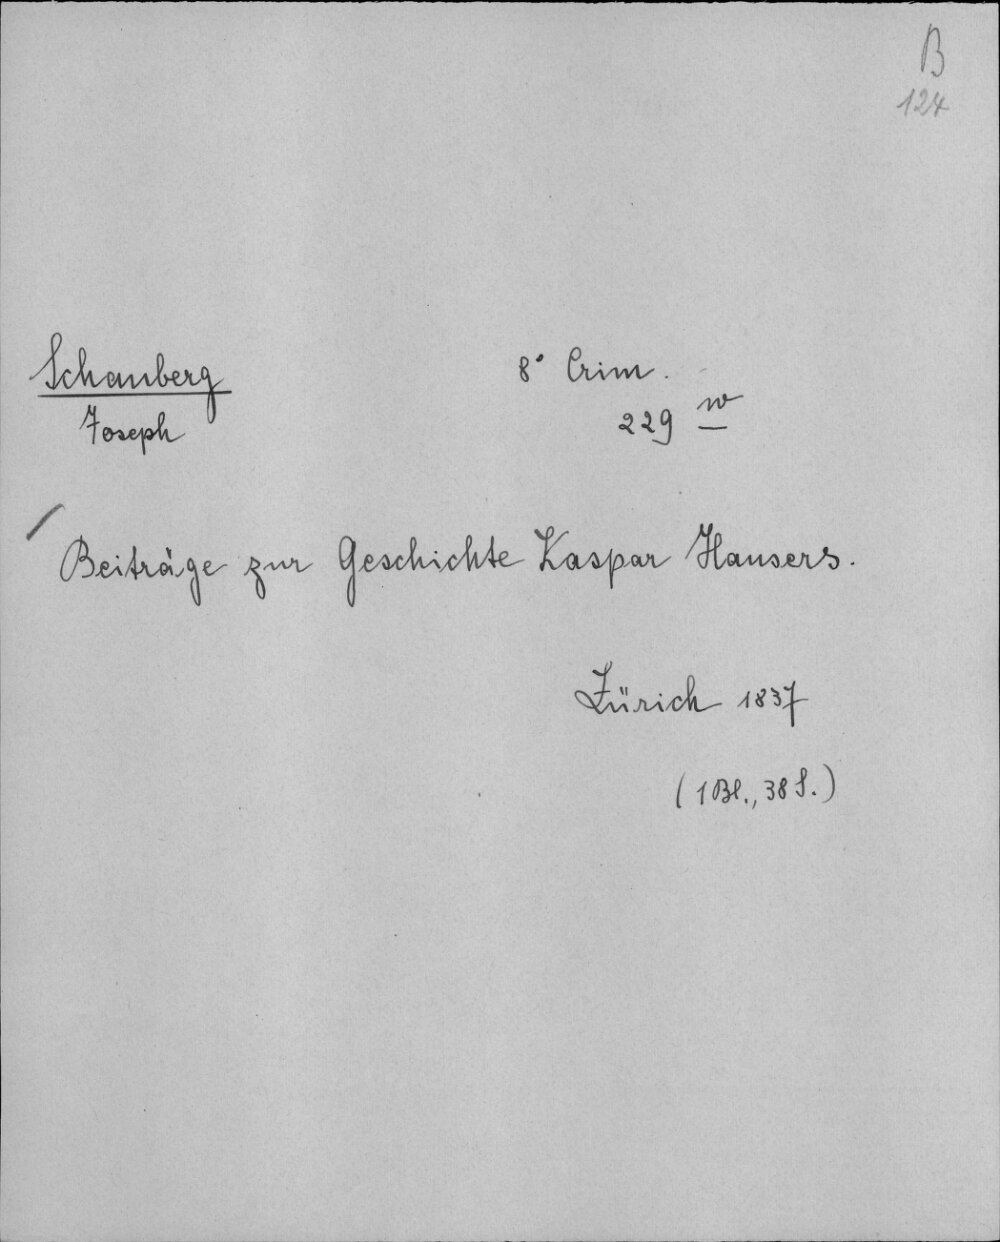 B
124
Schauberg
Joseph
8° Crim.
229 w
Beiträge zur Geschichte Kaspar Hausers.
Zürich 1837
(1 Bl., 38 S.)